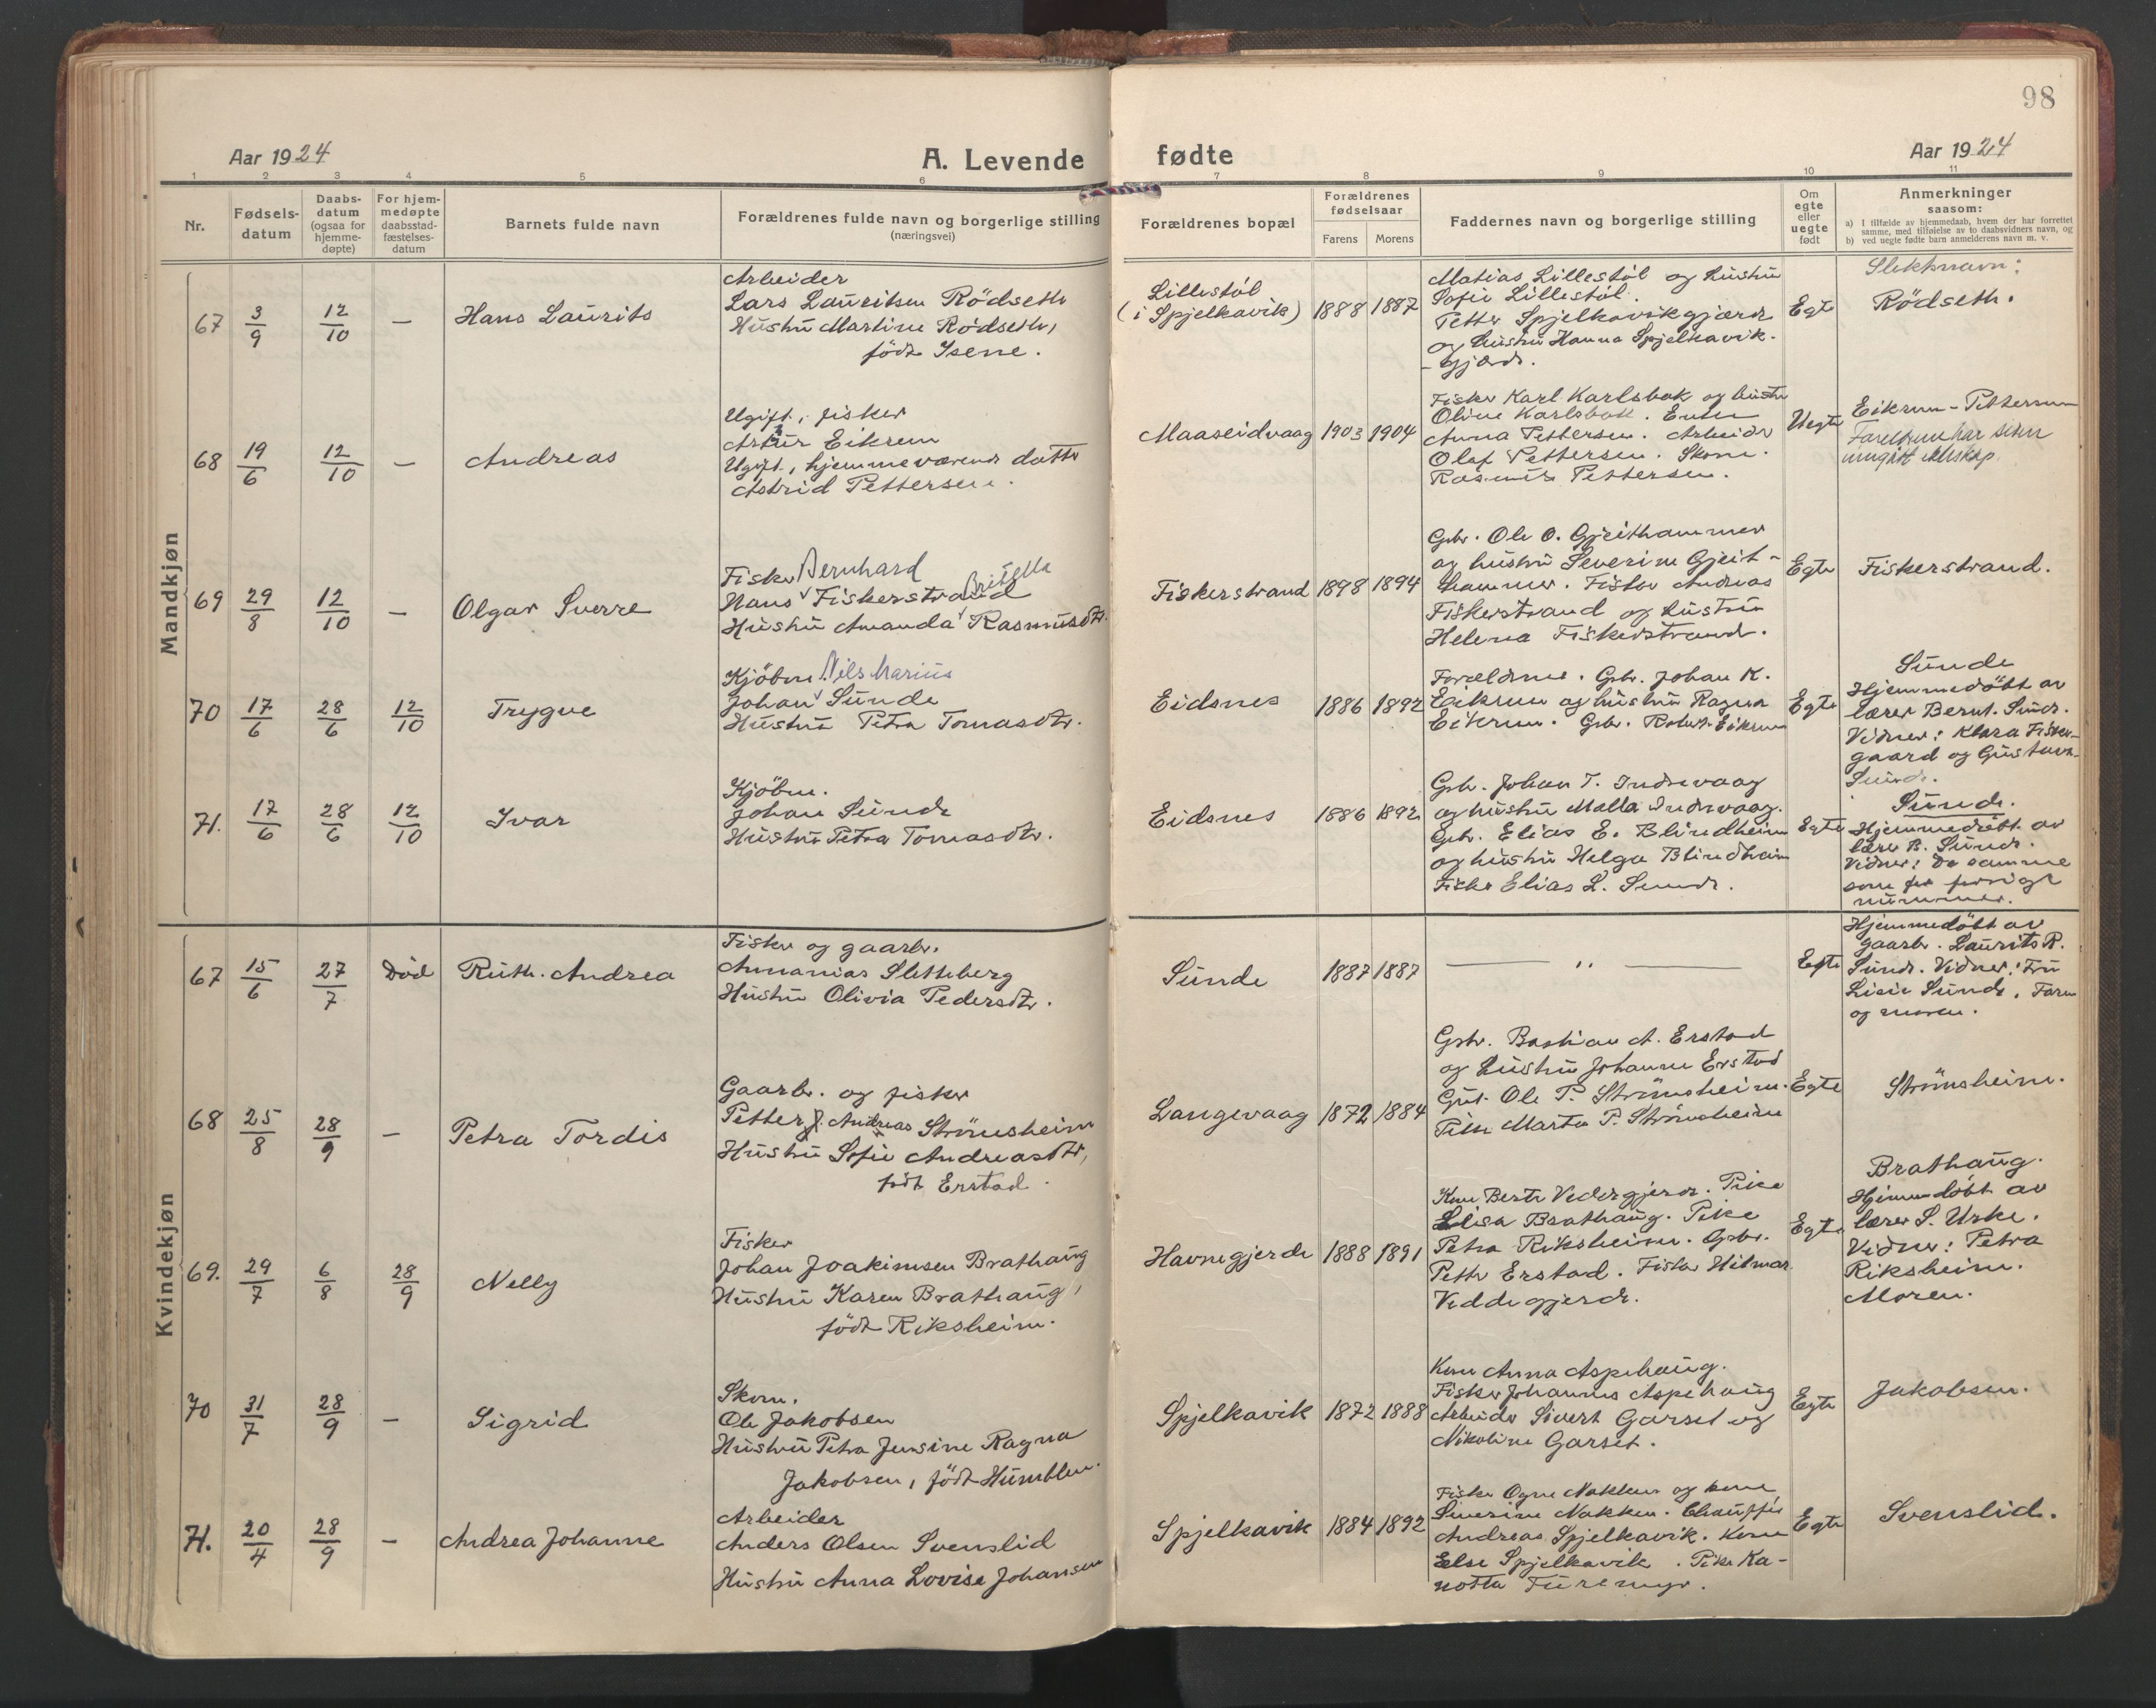 98
Aar 1924
A. Levende
fødte
Aar 1924
1 2 3 4 5 6 7 8 9 10 11
Nr.
Fødsels-
datum
Daabs-
datum
(ogsaa for
hjemme-
døpte)
For hjem-
medøpte
daabsstad-
fæstelses-
datum
Barnets fulde navn
Forældrenes fulde navn og borgerlige stilling
(næringsvei)
Forældrenes bopæl
Forældrenes
fødselsaar
Farens Morens
Faddernes navn og borgerlige stilling
Om
egte
eller
uegte
født
Anmerkninger
saasom:
a) I tilfælde av hjemmedaab, hvem der har forrettet
samme, med tilføielse av to daabsvidners navn, og
b) ved uegte fødte barn anmelderens navn m. v.
Mandkjøn
67 3/9 12/10 — Hans Laurits
Arbeider
Lars Lauritsen Rödseth
Hustru Martine Rödseth,
födt Isene.
Lillestöl
(i Spjelkavik) 1888 1887
Matias Lillestöl og hustru
Sofie Lillestöl.
Petter Spjelkavikgjærde
og hustru Hanna Spjelkavik-
gjærde.
Egte
Slektsnavn:
Rödseth.
68 19/6 12/10 — Andreas
Ugift, fisker
Artur Eikrem
Ugift, hjemmeværende datter
Astrid Pettersen.
Maaseidvaag 1903 1904
Fisker Karl Karlsbak og hustru
Oline Karlsbak. Enke
Anna Pettersen. Arbeider
Olaf Pettersen. Skom.
Rasmus Pettersen.
Uegte
Eikrem-Pettersen
Foreldrene har senere
inngått ekteskap.
69 29/8 12/10 — Olgar Sverre
Fisker Bernhard
Hans Fiskerstrand
Britella
Hustru Amanda Rasmusdtr.
Fiskerstrand 1898 1894
Gbr. Ole O. Gjeithammer
og hustru Severine Gjeit-
hammer. Fisker Andreas
Fiskerstrand og hustru
Helena Fiskerstrand.
Egte
Fiskerstrand.
70 17/6 28/6 12/10 Trygve
Kjöbm. Nils Marius
Johan Sunde
Hustru Petra Tomasdtr.
Eidsnes 1886 1892
Forældrene. Gbr. Johan K.
Eikrem og hustru Ragna
Eikrem. Gbr. Robert Eikrem
Egte
Sunde
Hjemmedöbt av
lærer Bernt Sunde.
Vidner: Klara Fisker-
gaard og Gustava
Sunde.
71. 17/6 28/6 12/10 Ivar
Kjöbm.
Johan Sunde
Hustru Petra Tomasdtr.
Eidsnes 1886 1892
Gbr. Johan T. Indrevaag
og hustru Malla Indrevaag.
Gbr. Elias E. Blindheim
og hustru Helga Blindheim
Fisker Elias L. Sunde.
Egte
Sunde.
Hjemmedöbt av
lærer B. Sunde.
Vidner: De samme
som for forrige
nummer.
Kvindekjøn
67 15/6 27/7 Död Ruth Andrea
Fisker og gaarbr.
Annanias Sletteberg
Hustru Olivia Pedersdtr.
Sunde 1887 1887
— " —
Egte
Hjemmedöbt av
gaarbr. Laurits R.
Sunde. Vidner: Fru
Lisie Sunde, Faren
og moren.
68 25/8 28/9 — Petra Tordis
Gaarbr. og fisker
Petter J. Andreas Strömsheim
Hustru Sofie Andreasdtr,
födt Erstad.
Langevaag 1872 1884
Gbr. Bastian A. Erstad
og hustru Johanne Erstad
Gut Ole P. Strömsheim.
Pike Marta P. Strömsheim
Egte
Strömsheim.
69. 29/7 6/8 28/9 Nelly
Fisker
Johan Joakimsen Brathaug
Hustru Karen Brathaug,
födt Riksheim.
Havnegjerde 1888 1891
Kone Berte Veddegjerde. Pike
Elisa Brathaug. Pike
Petra Riksheim. Gbr.
Petter Erstad. Fisker Hilmar
Veddegjerde.
Egte
Brathaug.
Hjemmedöbt av
lærer S. Urke.
Vidner: Petra
Riksheim.
Moren.
70 31/7 28/9 — Sigrid
Skom.
Ole Jakobsen
Hustru Petra Jensine Ragna
Jakobsen, födt Humblen.
Spjelkavik 1872 1888
Kone Anna Aspehaug.
Fisker Johannes Aspehaug
Arbeider Sivert Garset og
Nikoline Garset.
Egte
Jakobsen.
71. 20/4 28/9 — Andrea Johanne
Arbeider
Anders Olsen Svenslid
Hustru Anna Lovise Johansen
Spjelkavik 1884 1892
Fisker Ogne Nakken og kone
Severine Nakken. Chauffør
Andreas Spjelkavik. Kone
Else Spjelkavik. Pike Ka-
notta Furemyr.
Egte
Svenslid.